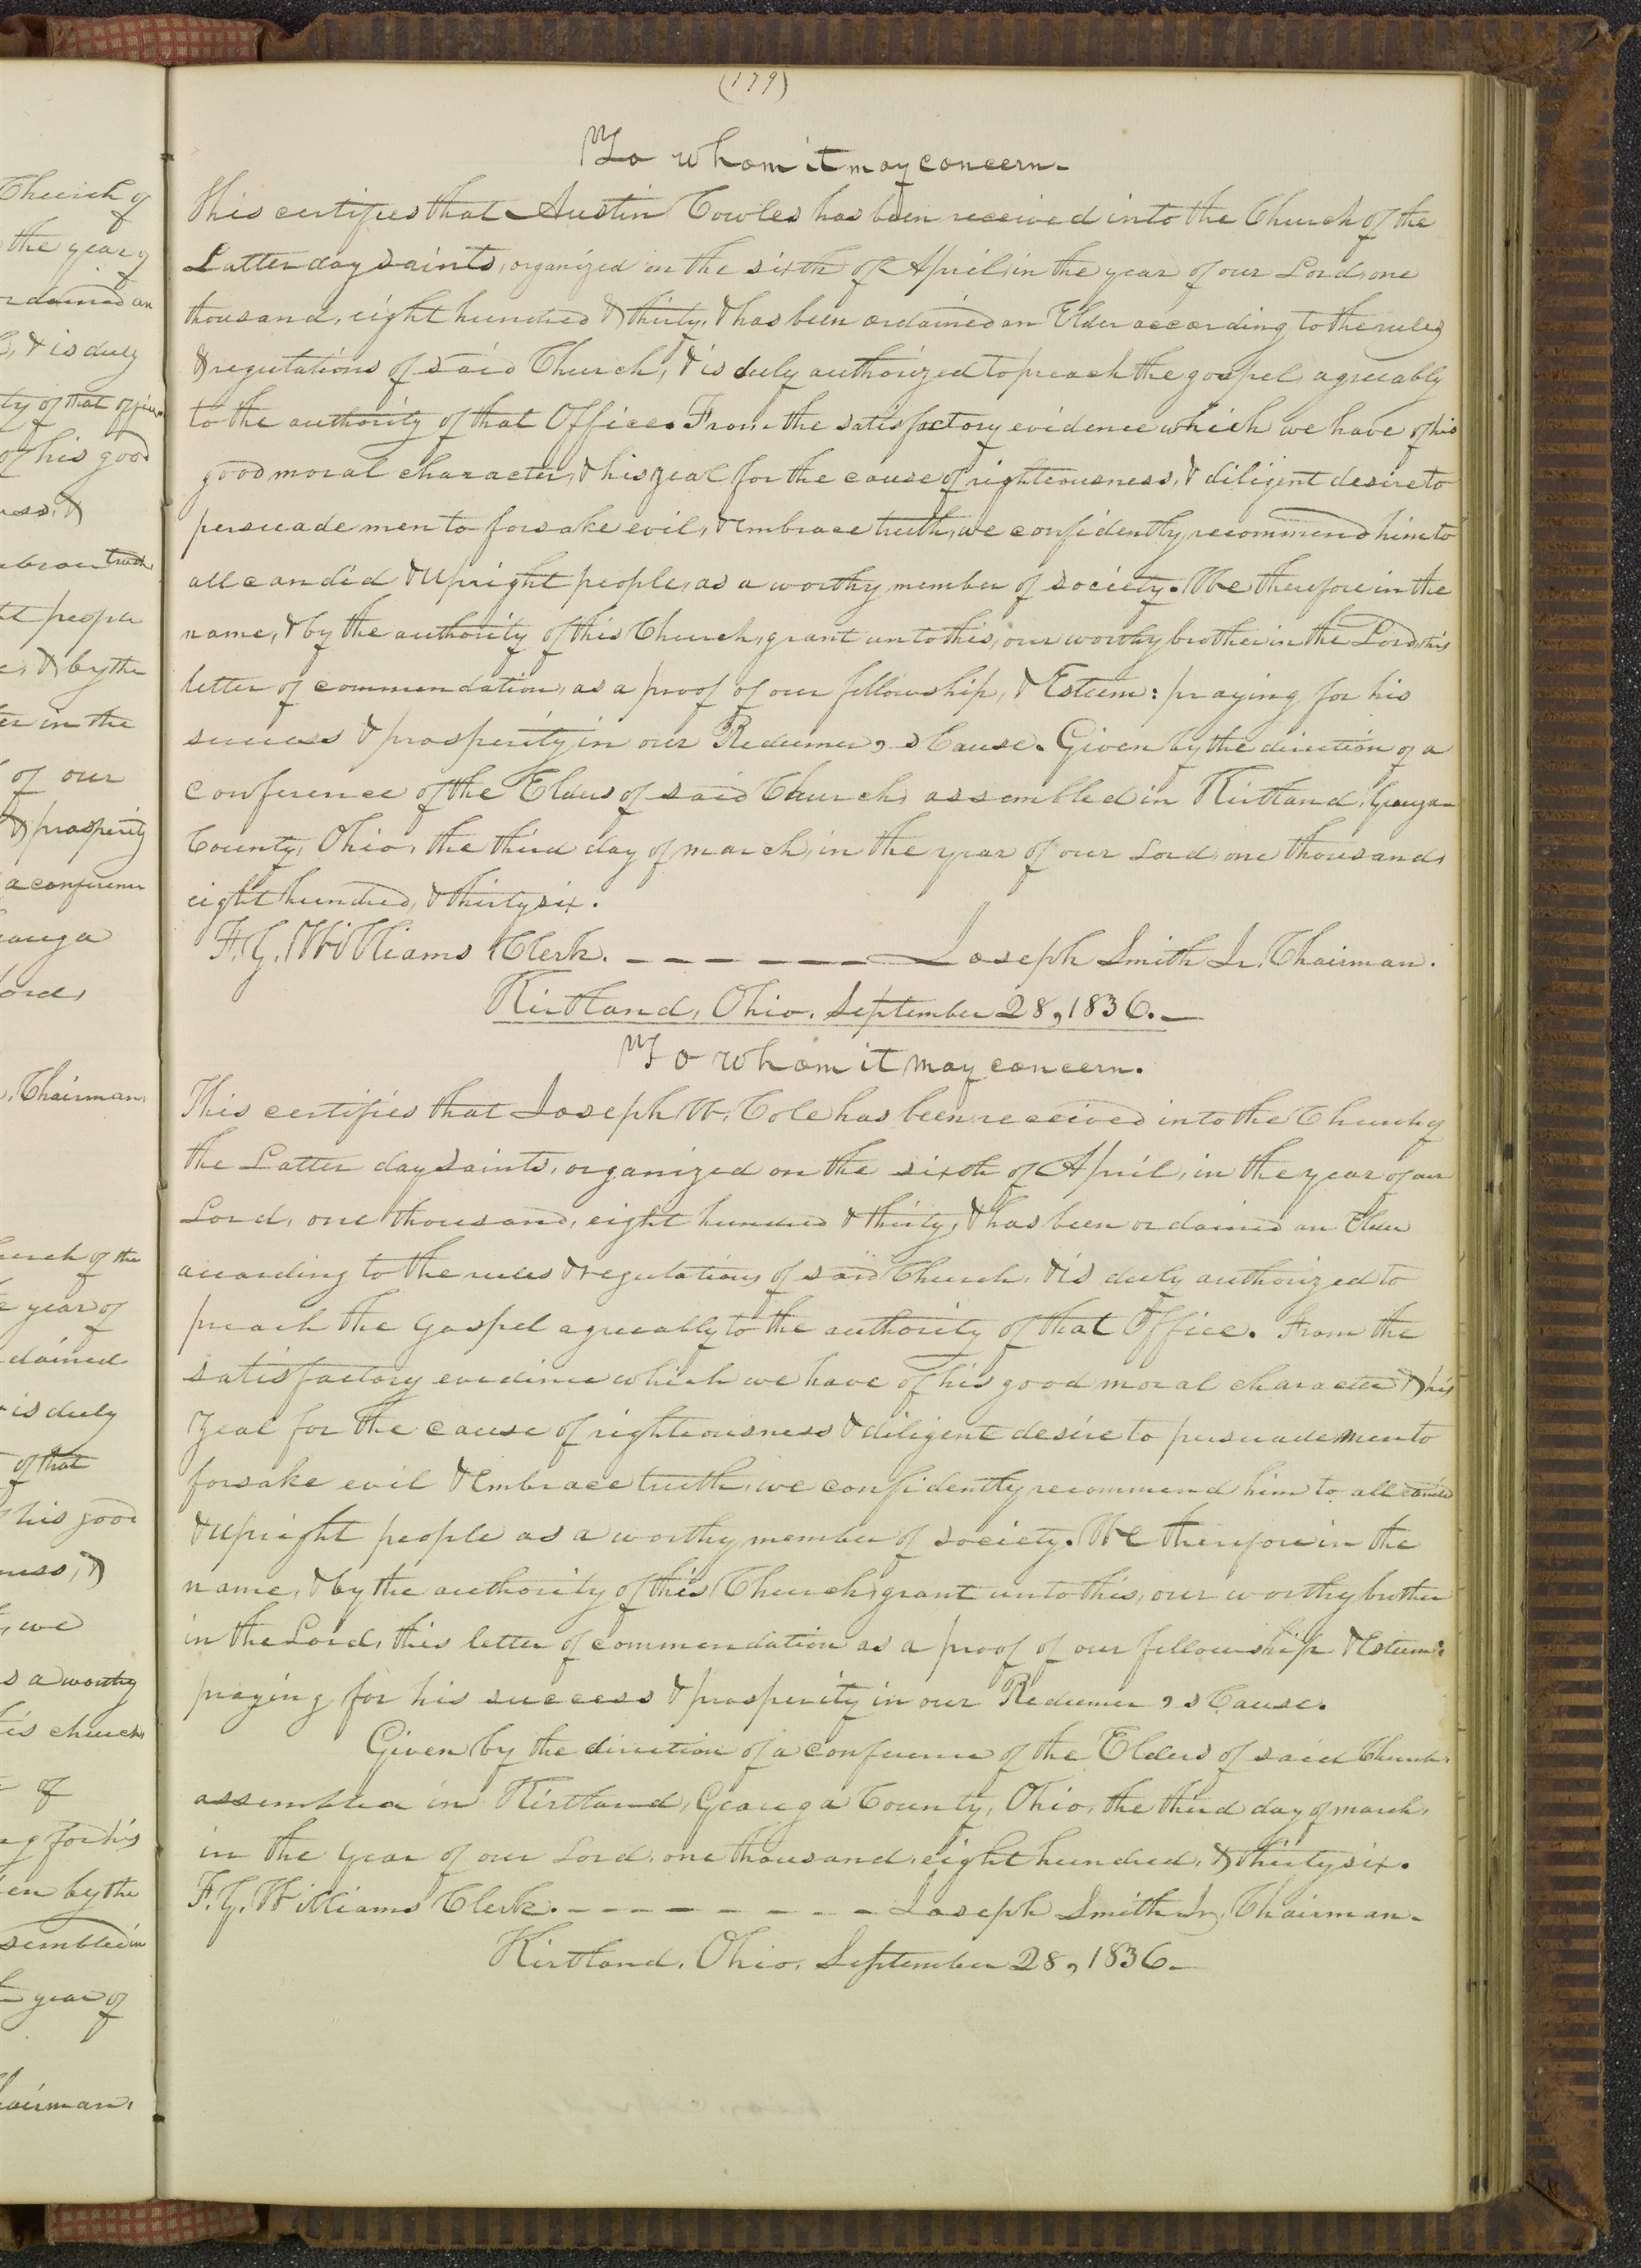 (179)
To whom it may concern.
This certifies that Austin Cowles has been received into the Church of the
Latter day saints, organized on the sixth of April, in the year of our Lord, one
thousand, eight hundred & thirty, & has been ordained an Elder according to the rules
& regulations of said Church, & is duly authorized to preach the gospel, agreeably
to the authority of that Office. From the satisfactory evidence which we have of his
good moral character, & his zeal for the cause of righteousness, & diligent desire to
persuade men to forsake evil, & embrace truth, we confidently recommend him to
all candid & upright people, as a worthy member of society. We therefore in the
name, & by the authority of this Church, grant unto this, our worthy brother in the Lord, this
letter of commendation, as a proof of our fellowship, & Esteem: praying for his
success & prosperity in our Redeemer,s Cause. Given by the direction of a
conference of the Elders of said Church, assembled in Kirtland, Geauga
County, Ohio, the third day of march, in the year of our Lord, one thousand,
eight hundred, & thirty six.
F. G. Williams Clerk. – – – – – – – Joseph Smith Jr. Chairman.
Kirtland, Ohio, September 28, 1836.–
To whom it may concern.
This certifies that Joseph W. Cole has been received into the Church of
the Latter day saints, organized on the sixth of April, in the year of our
Lord, one thousand, eight hundred & thirty, & has been ordained an Elder
according to the rules & regulations of said Church, & is duly authorized to
preach the Gospel agreeably to the authority of that Office. From the
satisfactory evidence which we have of his good moral character & his
zeal for the cause of righteousness & diligent desire to persuade men to
forsake evil & embrace truth, we confidently recommend him to all candid
& upright people as a worthy member of society. We therefore in the
name, & by the authority of this Church, grant unto this, our worthy brother
in the Lord, this letter of commendation as a proof of our fellowship & Esteem:
praying for his success & prosperity in our Redeemer,s Cause.
Given by the direction of a conference of the Elders of said Church,
assembled in Kirtland, Geauga County, Ohio, the third day of march,
in the year of our Lord, one thousand, eight hundred, & thirty six.
F. G. Williams Clerk. – – – – – – – – – Joseph Smith Jr, Chairman.
Kirtland, Ohio, September 28, 1836.–
Church of
the year of
ordained an
& is duly
ty of that office
of his good
ness, &
embrace truth
people
& by the
in the
of our
& prosperity
a conference
Geauga
Lord,
Chairman.
Church of the
year of
dained
is duly
of that
his good
ness, &
, we
s a worthy
is church
of
for his
en by the
sembled in
year of
Chairman.